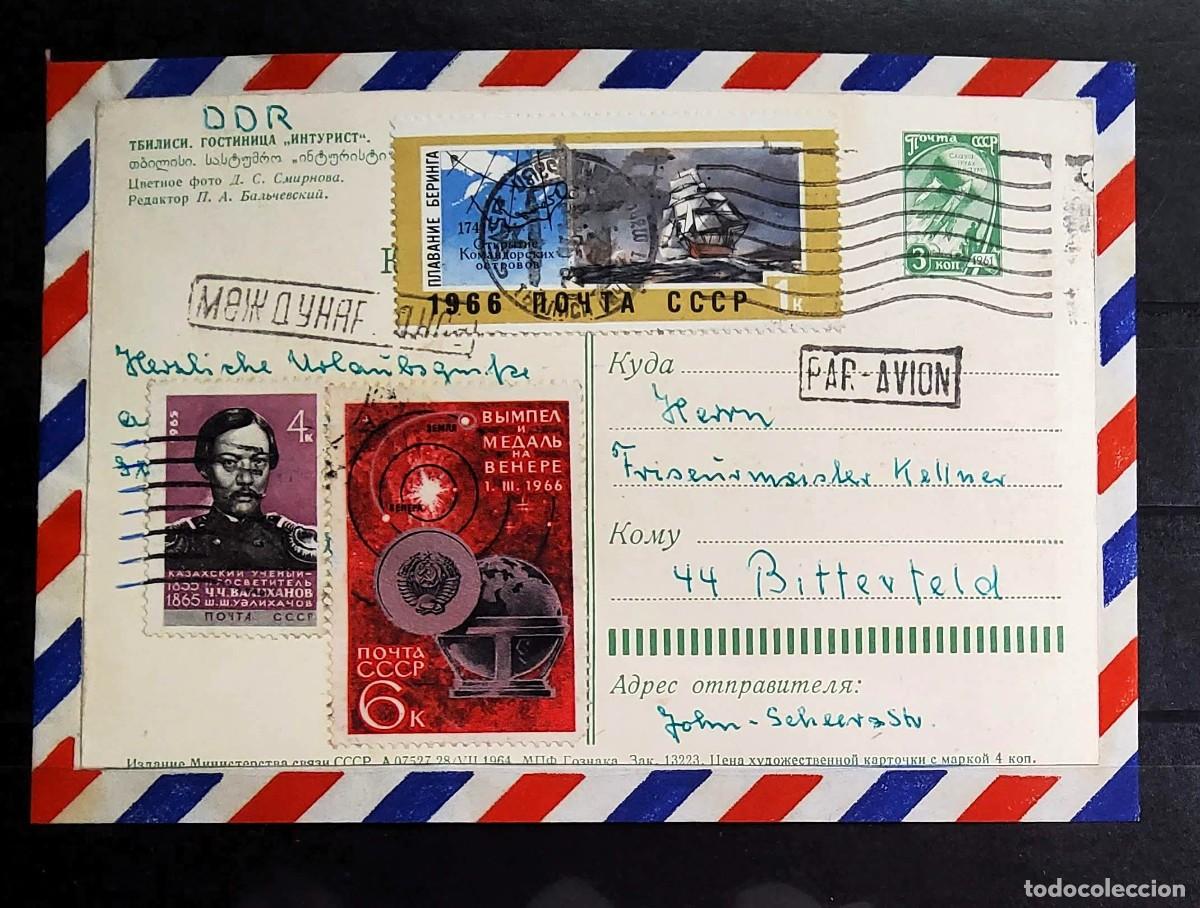 DDR
ТБИЛИСИ. ГОСТИНИЦА „ИНТУРИСТ“.
თბილისი. სასტუმრო „ინტურისტი
Цветное фото Д. С. Смирнова.
Редактор П. А. Бальчевский.
ПЛАВАНИЕ БЕРИНГА
Открытие
Командорских
островов
1966 ПОЧТА СССР 1к
Почта СССР
3 коп. 1961
МЕЖДУНАР
PAR-AVION
Herzliche Urlaubsgrüße
1965
4к
КАЗАХСКИЙ УЧЕНЫЙ-
1835 ПРОСВЕТИТЕЛЬ
1865 Ч.Ч.ВАЛИХАНОВ
Ш.Ш.УӘЛИХАНОВ
ПОЧТА СССР
ВЫМПЕЛ
И
МЕДАЛЬ
НА
ВЕНЕРЕ
1. III. 1966
ЗЕМЛЯ
ВЕНЕРА
ПОЧТА
СССР
6к
Куда
Herrn
Friseurmeister Kellner
Кому
44 Bitterfeld
Адрес отправителя:
John-Scheer-Str.
Издание Министерства связи СССР. А 07527 28/VII 1964. МПФ Гознака. Зак. 13223. Цена художественной карточки с маркой 4 коп.
todocoleccion